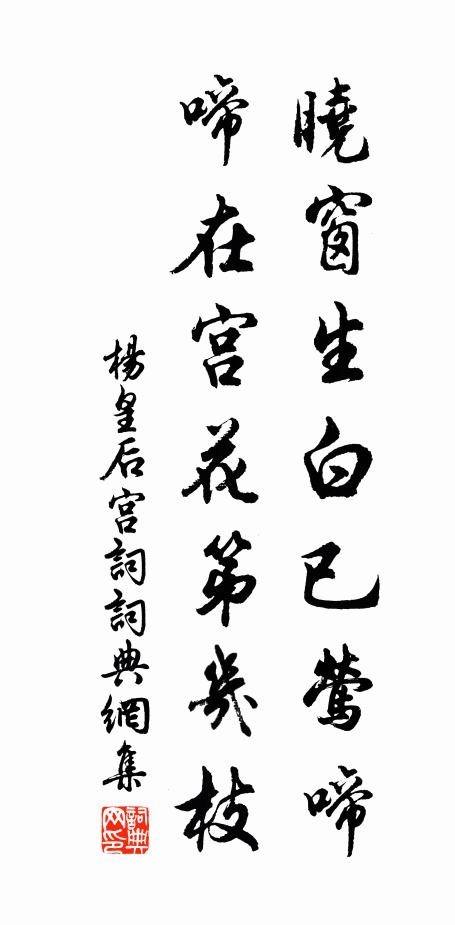 曉窗生白已鶯啼
啼在宮花第幾枝
楊皇后宮詞詞典網集
詞典
网印